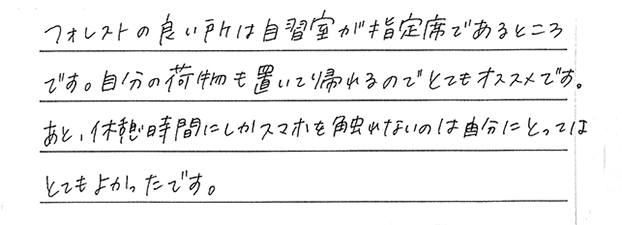 フォレストの良い所は自習室が指定席であるところ
です。自分の荷物も置いて帰れるのでとてもオススメです。
あと、休憩時間にしかスマホを触れないのは自分にとっては
とてもよかったです。